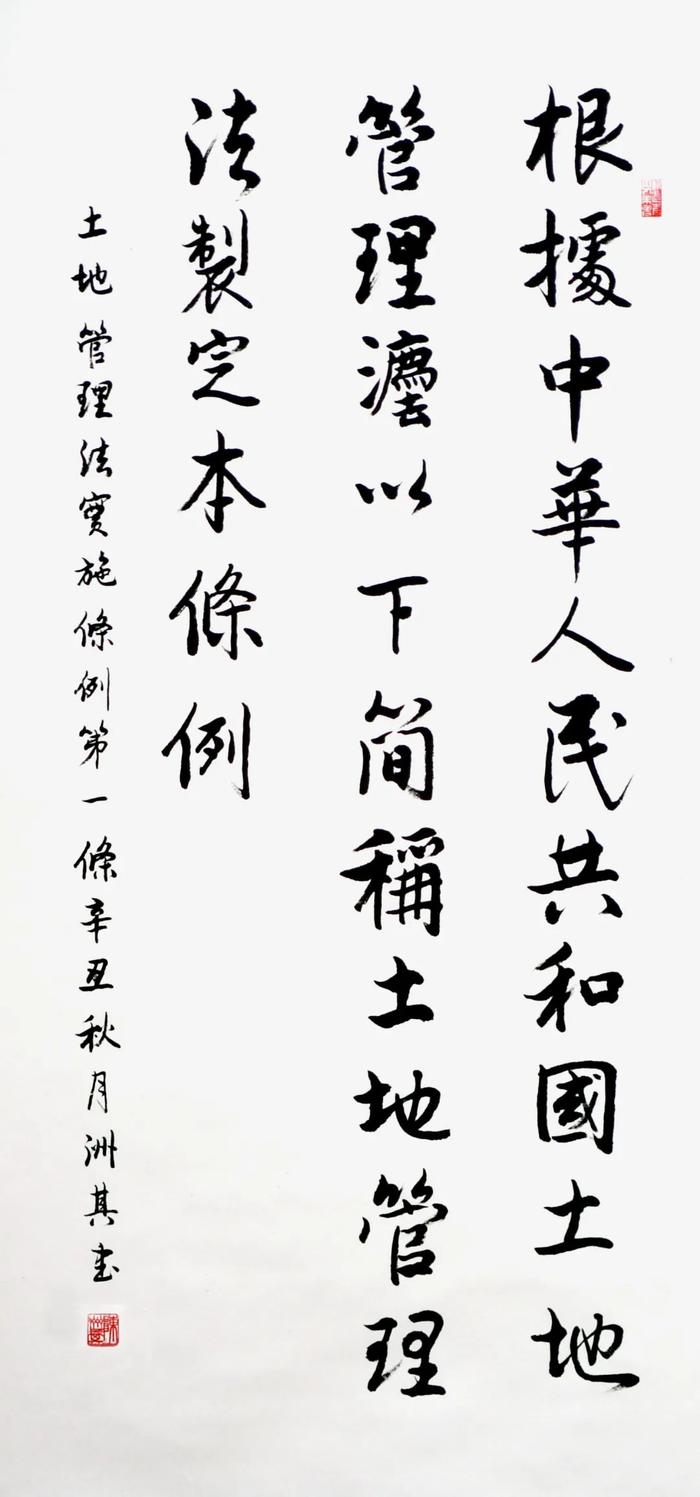 根據中華人民共和國土地
管理灋以下简稱土地管理
法製定本條例
土地管理法實施條例第一條辛丑秋月洲其书